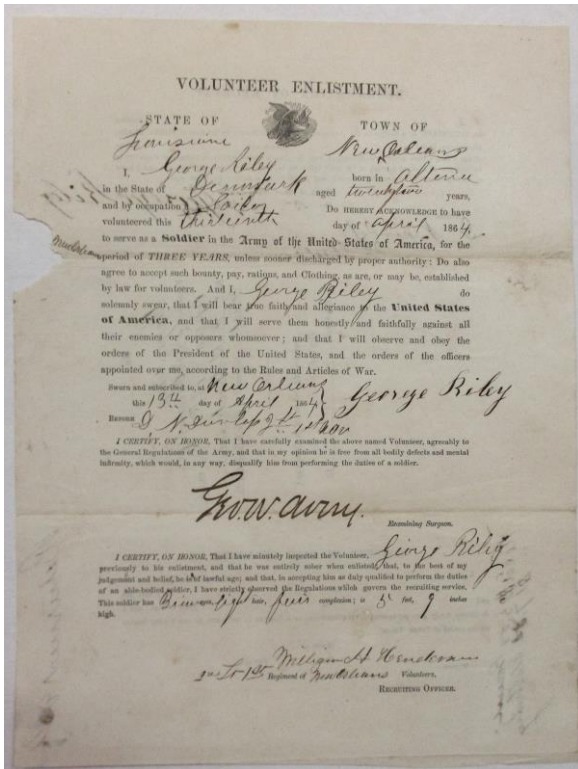 VOLUNTEER ENLISTMENT.
STATE OF TOWN OF
Louisiana New Orleans
I, George Riley born in Altena
in the State of Denmark aged twentytwo years,
and by occupation a Sailor Do HEREBY ACKNOWLEDGE to have
volunteered this thirteenth day of April 1864,
to serve as a Soldier in the Army of the United States of America, for the
period of THREE YEARS, unless sooner discharged by proper authority: Do also
agree to accept such bounty, pay, rations, and Clothing, as are, or may be, established
by law for volunteers. And I, George Riley do
solemnly swear, that I will bear true faith and allegiance to the United States
of America, and that I will serve them honestly and faithfully against all
their enemies or opposers whomsoever; and that I will observe and obey the
orders of the President of the United States, and the orders of the officers
appointed over me, according to the Rules and Articles of War.
Sworn and subscribed to, at New Orleans
this 13th day of April 1864 George Riley
BEFORE
I CERTIFY, ON HONOR, That I have carefully examined the above named Volunteer, agreeably to
the General Regulations of the Army, and that in my opinion he is free from all bodily defects and mental
infirmity, which would, in any way, disqualify him from performing the duties of a soldier.
Geo. W. Avery.
Examining Surgeon.
I CERTIFY, ON HONOR, That I have minutely inspected the Volunteer, George Riley
previously to his enlistment, and that he was entirely sober when enlisted; that, to the best of my
judgement and belief, he is of lawful age; and that, in accepting him as duly qualified to perform the duties
of an able-bodied soldier, I have strictly observed the Regulations which govern the recruiting service.
This soldier has eyes, light hair, fair complexion; is 5 feet, 9 inches
high.
William H
1st Regiment of New Orleans Volunteers,
RECRUITING OFFICER.